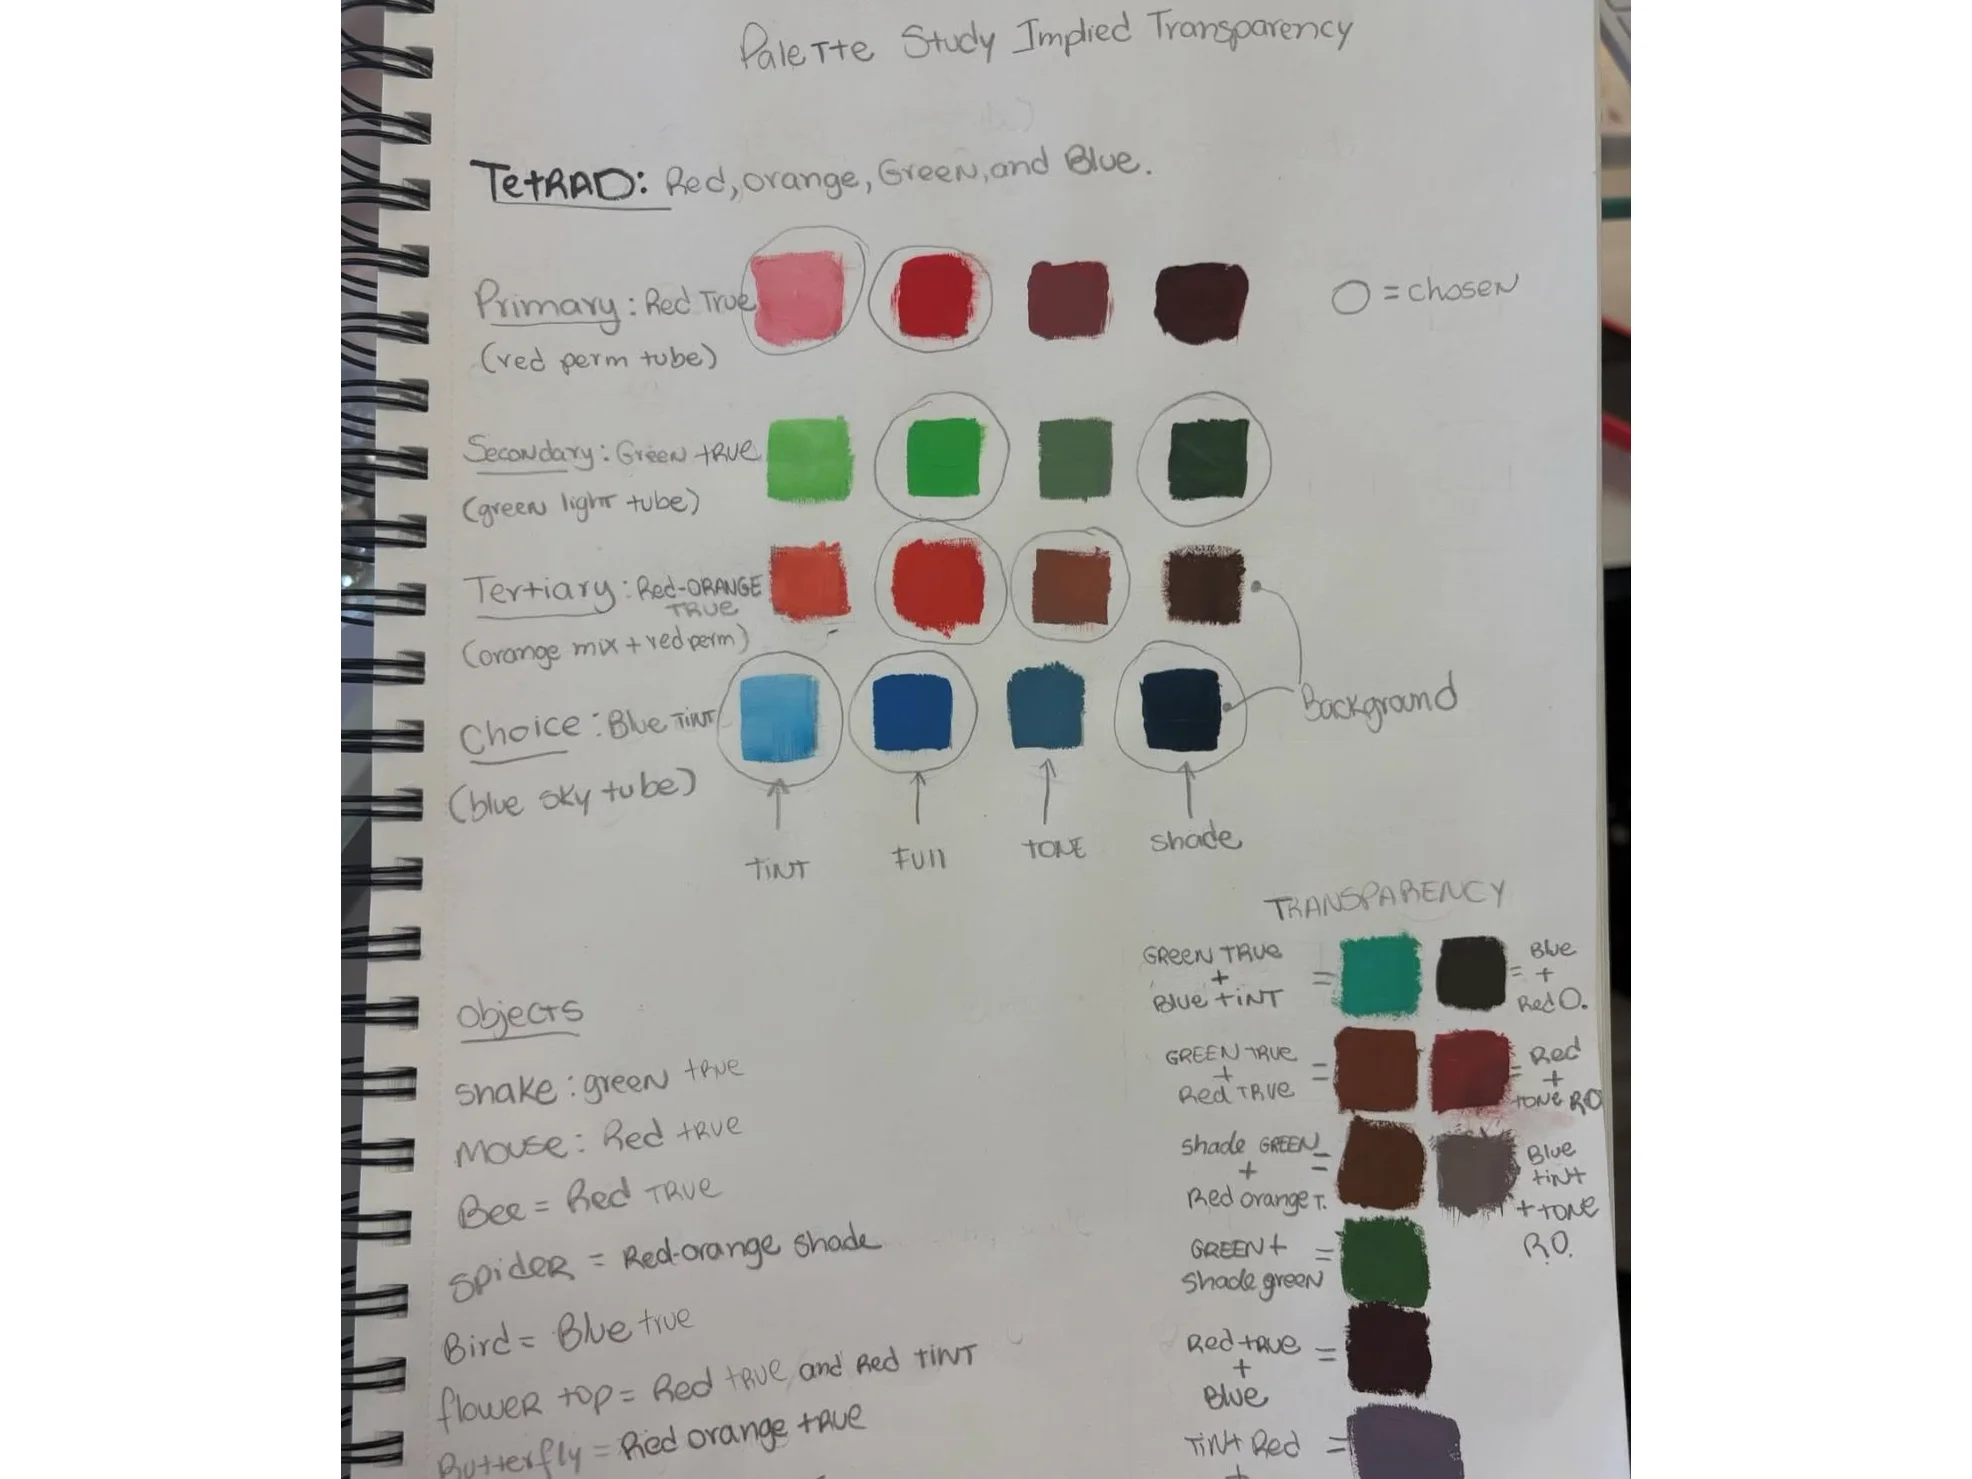 Palette Study Implied Transparency
TetRAD: Red, orange, Green, and Blue.
Primary: Red True
(red perm tube)
O = chosen
Secondary: Green tRUe
(green light tube)
Tertiary: Red-ORANGE
TRUe
(orange mix + red perm)
Choice: Blue TiNT
(blue sky tube)
Background
TiNT
Full
TONE
shade
TRANSPARENCY
GReeN TRUe
+
Blue + tiNT
=
= Blue
+
Red O.
GREEN TRUe
+
Red TRUE
=
= Red
+
TONE RO
shade GREEN
+
Red orange T.
=
Blue
tint
+ tone
R.O.
GREEN +
shade green
=
Red tRUe
+
Blue
=
TiNt Red
+
=
objects
snake: green true
Mouse: Red true
Bee = Red TRUe
spider = Red-orange shade
Bird = Blue true
flower top = Red true and Red TiNT
Butterfly = Red orange true